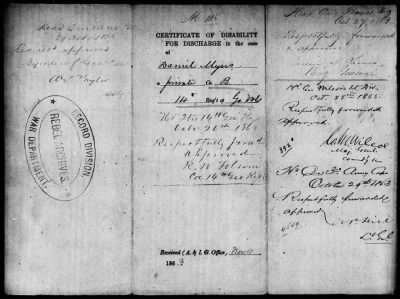 Head Quarters
29 Oct 1863
approved
By order of Genl
W. Taylor
RECORD DIVISION,
REBEL ARCHIVES,
WAR DEPARTMENT.
M
CERTIFICATE OF DISABILITY
FOR DISCHARGE in the case
of
Daniel Myers
private Co. B.
14 Reg't Ga Vols
Hd Qrs 14th Ga Reg
Octo 26th 1863
Respectfully forw'd
approved
R. W. Folsom
Col 14th Ga Regt
Received (A. & I. G. Office,
186 3
Oct 27, 1863
Respectfully forwarded
& approved
Brig General
Hd Qrs Wilcox's Lt Div.
Oct. 28th 1863.
Respectfully forwarded
approved.
C M Wilcox
Maj. Genl.
Comdg
Hd Qrs 3d Army Corps
October 29th 1863
Respectfully forwarded
approved
A P Hill
Lt Genl